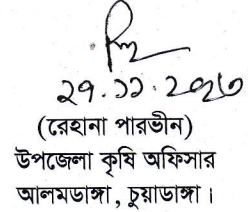 ২১.১১.২০২৩
(রেহানা পারভীন)
উপজেলা কৃষি অফিসার
আলমডাঙ্গা, চুয়াডাঙ্গা।